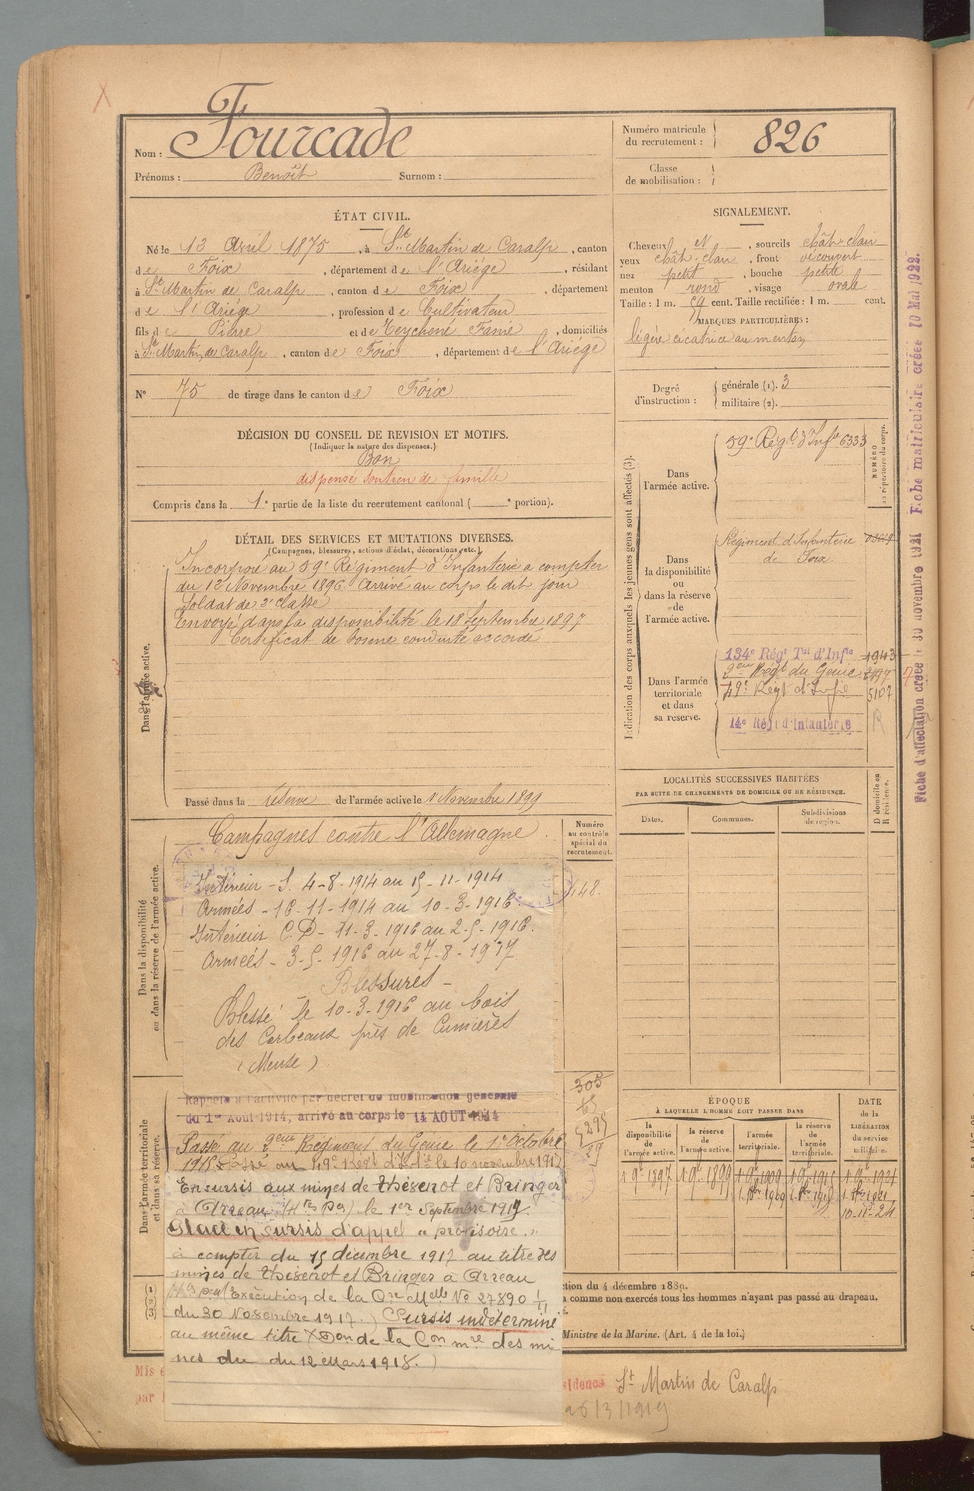 Fourcade
Nom :
Prénoms : Benoît Surnom :
Numéro matricule
du recrutement : 826
Classe
de mobilisation :
ÉTAT CIVIL.
Né le 13 Avril 1875, à St Martin de Caralp, canton
de Foix, département de l'Ariége, résidant
à St Martin de Caralp, canton de Foix, département
de l'Ariége, profession de Cultivateur
fils de Pierre et de Teychené Fanie, domiciliés
à St Martin de Caralp, canton de Foix, département de l'Ariége
N° 75 de tirage dans le canton de Foix
SIGNALEMENT.
Cheveux N, sourcils chât clair
yeux chât. clair, front découvert
nez petit, bouche petite
menton rond, visage ovale
Taille : 1 m. 59 cent. Taille rectifiée : 1 m. cent.
MARQUES PARTICULIÈRES :
légère cicatrice au menton
Degré
d'instruction :
générale (1). 3
militaire (2).
DÉCISION DU CONSEIL DE REVISION ET MOTIFS.
(Indiquer la nature des dispenses.)
Bon
dispensé soutien de famille
Compris dans la 1e partie de la liste du recrutement cantonal ( e portion).
DÉTAIL DES SERVICES ET MUTATIONS DIVERSES.
(Campagnes, blessures, actions d'éclat, décorations, etc.)
Dans l'armée active.
Incorporé au 59e Régiment d'Infanterie à compter
du 12 Novembre 1896. Arrivé au corps le dit jour
Soldat de 2e classe
Envoyé dans la disponibilité le 18 Septembre 1897
Certificat de bonne conduite accordé
Passé dans la réserve de l'armée active le 1 Novembre 1899
Indication des corps auxquels les jeunes gens sont affectés (3).
Dans
l'armée active.
59e Régt d'Infie 6333
NUMÉRO
au répertoire du corps.
Dans
la disponibilité
ou
dans la réserve
de
l'armée active.
Régiment d'Infanterie
de Foix
Dans l'armée
territoriale
et dans
sa réserve.
134e Régt Tal d'Infie 1943
2eme Régt du Génie
49e Régt d'Infie 5107
14e Régt d'Infanterie R
Fiche d'affectation créée le 30 novembre 1921 Fiche matriculaire créée 10 Mai 1922.
LOCALITÉS SUCCESSIVES HABITÉES
PAR SUITE DE CHANGEMENTS DE DOMICILE OU DE RÉSIDENCE.
D domicile ou
R résidence.
Dates.
Communes.
Subdivisions
de région.
Dans la disponibilité
ou dans la réserve de l'armée active.
Campagnes contre l'Allemagne.
Numéro
au contrôle
spécial du
recrutement.
148.
Intérieur - S. 4-8-1914 au 15-11-1914
Armées - 16-11-1914 au 10-3-1916.
Intérieur C.D- 11-3-1916 au 2-5-1916.
Armées - 3-5-1916 au 27-8-1917
Blessures -
Blessé le 10-3-1916 au bois
des Corbeaux près de Cumières
(Meuse)
Dans l'armée territoriale
et dans sa réserve.
Rappelé à l'activité par décret de mobilisation générale
du 1er Août 1914, arrivé au corps le 14 AOUT 1914
305
5295
Passé au 2eme Régiment du Génie le 1er Octobre
1915 Passé au 49e Régt d'Infie le 10 novembre 1917
En sursis aux mines de Thésenot et Bringer
à Arreau (Htes Py) le 1er Septembre 1917.
Placé en sursis d'appel "provisoire"
à compter du 15 décembre 1917 au titre des
mines de Thésenot et Bringer à Arreau
(Exécution de la Qre Melle No 27890 1/11
du 30 Novembre 1917.) Sursis indéterminé
au même titre (Don de la Con mre des mi
nes du du 12 Mars 1918.)
ÉPOQUE
À LAQUELLE L'HOMME DOIT PASSER DANS
DATE
de la
LIBÉRATION
du service
militaire.
la
disponibilité
de
l'armée active.
la
réserve
de
l'armée active.
l'armée
territoriale.
la
réserve
de l'armée
territoriale.
10-11-24
ction du 4 décembre 1889.
comme non exercés tous les hommes n'ayant pas passé au drapeau.
Ministre de la Marine. (Art. 4 de la loi.)
Mis e
par
sidence St Martin de Caralp
26/3/1919